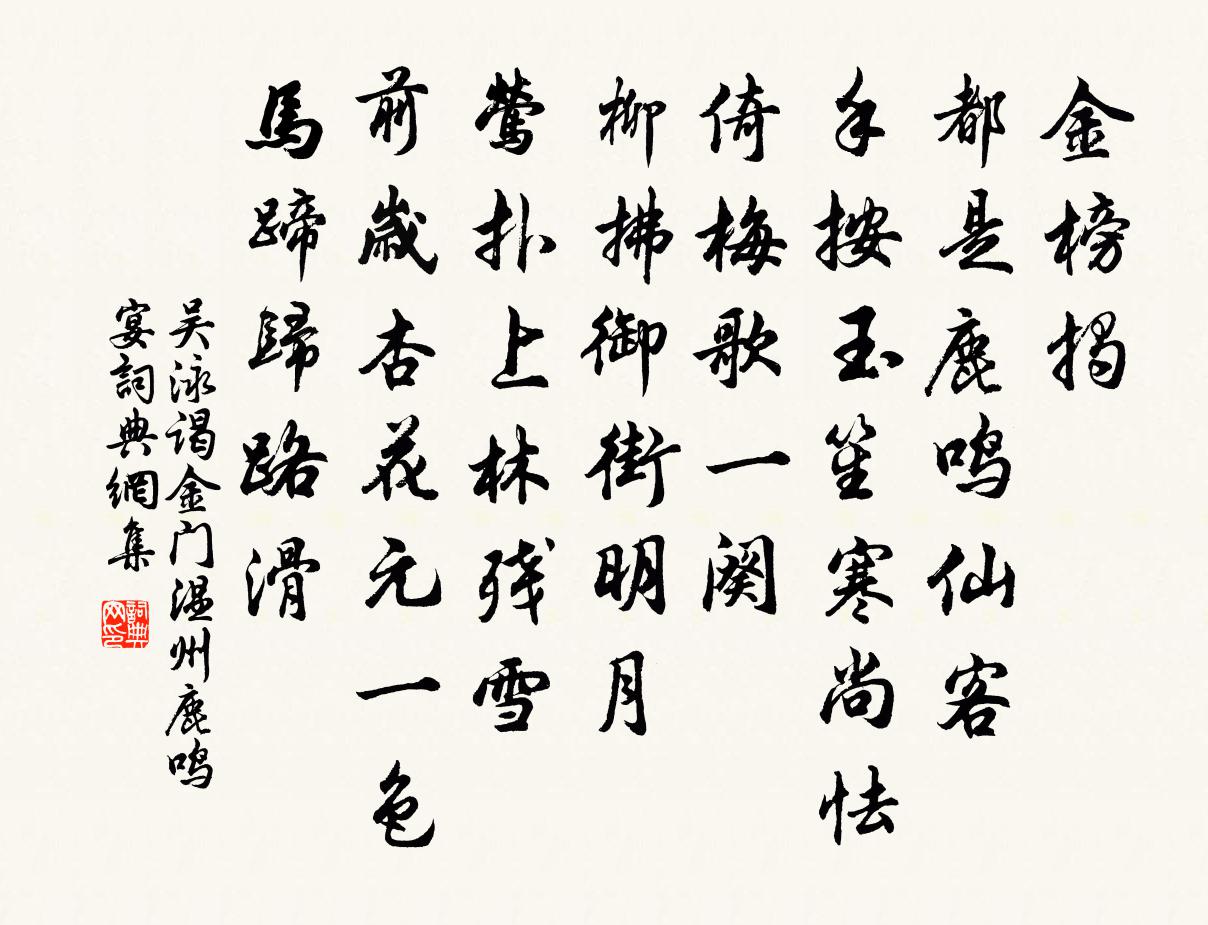 金榜揭
都是鹿鸣仙客
手按玉笙寒尚怯
倚梅歌一阕
柳拂御街明月
莺扑上林残雪
前歲杏花元一色
馬蹄歸路滑
吴泳谒金门温州鹿鸣
宴詞典網集
詞典
网印